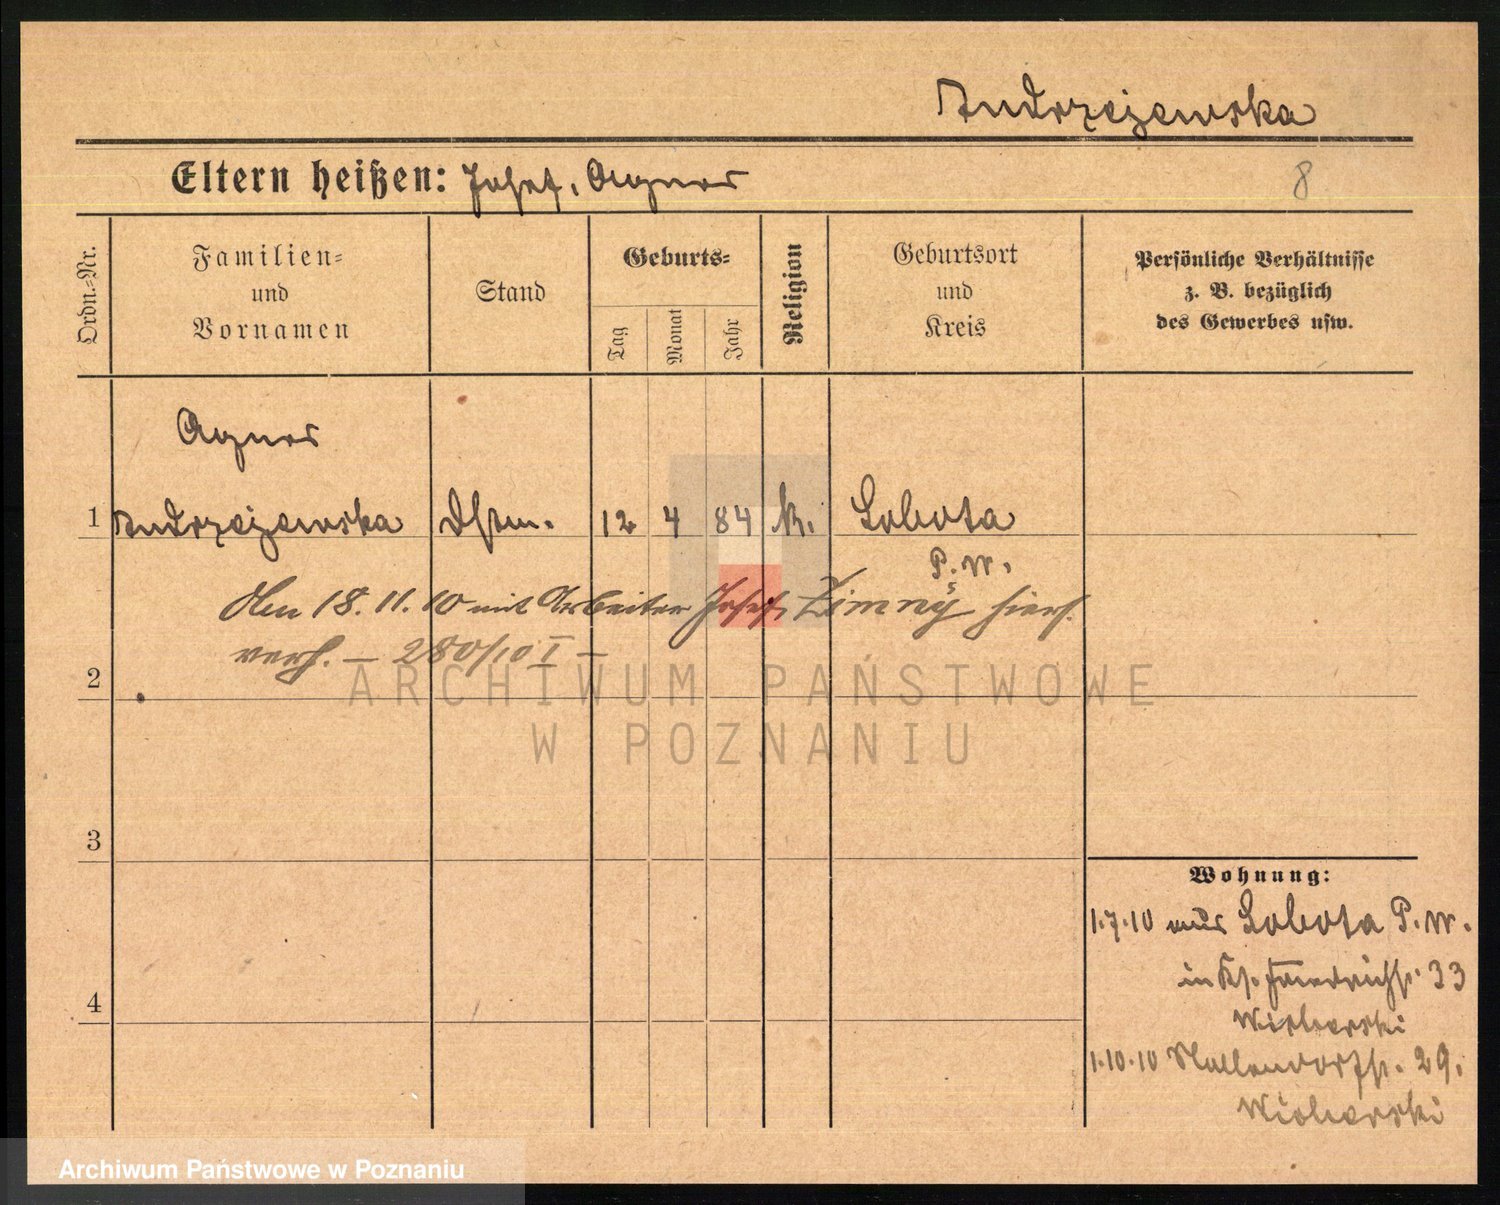 Andrzejewska
Eltern heißen: Josef, Agnes
8
Ordn.-Nr.
Familien- und Vornamen
Stand
Geburts-
Tag
Monat
Jahr
Religion
Geburtsort und Kreis
Persönliche Verhältnisse z. B. bezüglich des Gewerbes usw.
Agnes
1 Andrzejewska Dstm. 12 4 84 k. Sobota
P. W.
Am 18. 11. 10 mit Arbeiter Josef Zimny hiers.
verh. — 280/10 I —
2
3
4
Wohnung:
1.7.10 aus Sobota P. W.
in Ks. Friedrichstr. 33
1.10.10 29.
ARCHIWUM PAŃSTWOWE
W POZNANIU
Archiwum Państwowe w Poznaniu